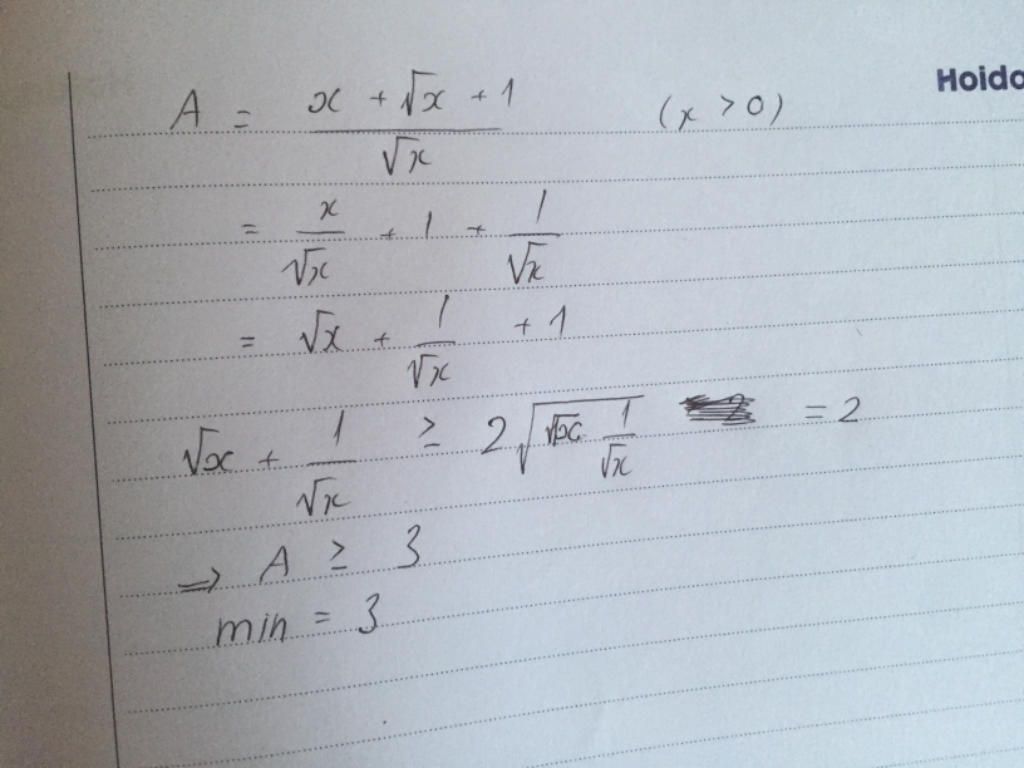 Hoido
A = (x + √x + 1) / √x (x > 0)
= x/√x + 1 + 1/√x
= √x + 1/√x + 1
√x + 1/√x ≥ 2√(√x 1/√x) = 2
⇒ A ≥ 3
min = 3